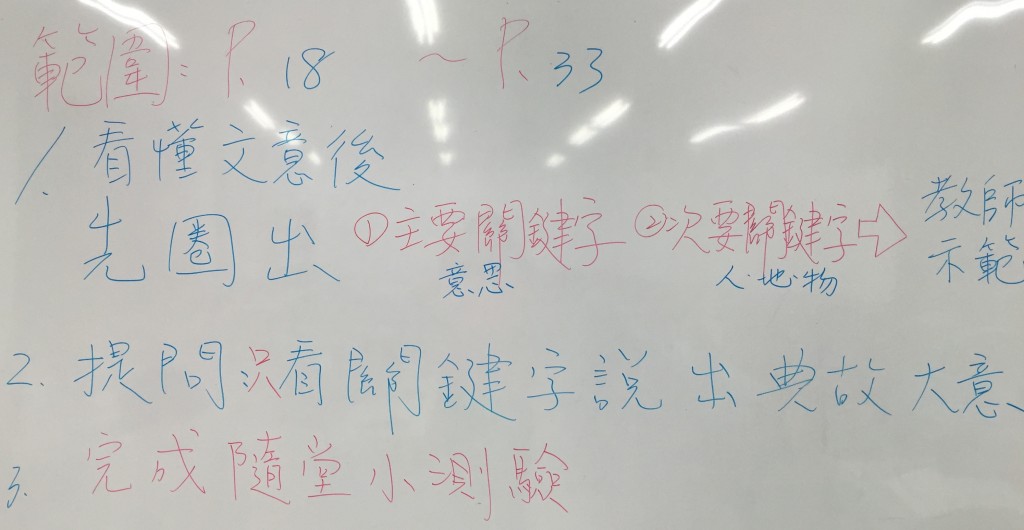 範圍:P.18 ~ P.33
1. 看懂文意後
先圈出 ①主要關鍵字 ②次要關鍵字⇨ 教師
意思 人·地·物 示範
2. 提問只看關鍵字說出典故大意、
3. 完成隨堂小測驗